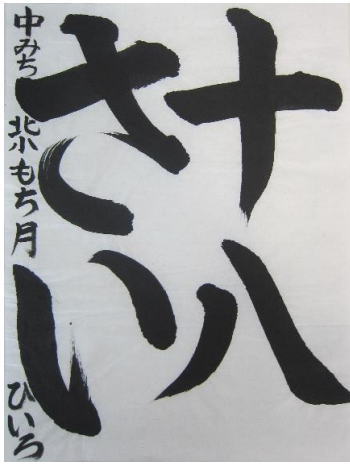 十八
さい
中みち 北小 もち月 ひいろ